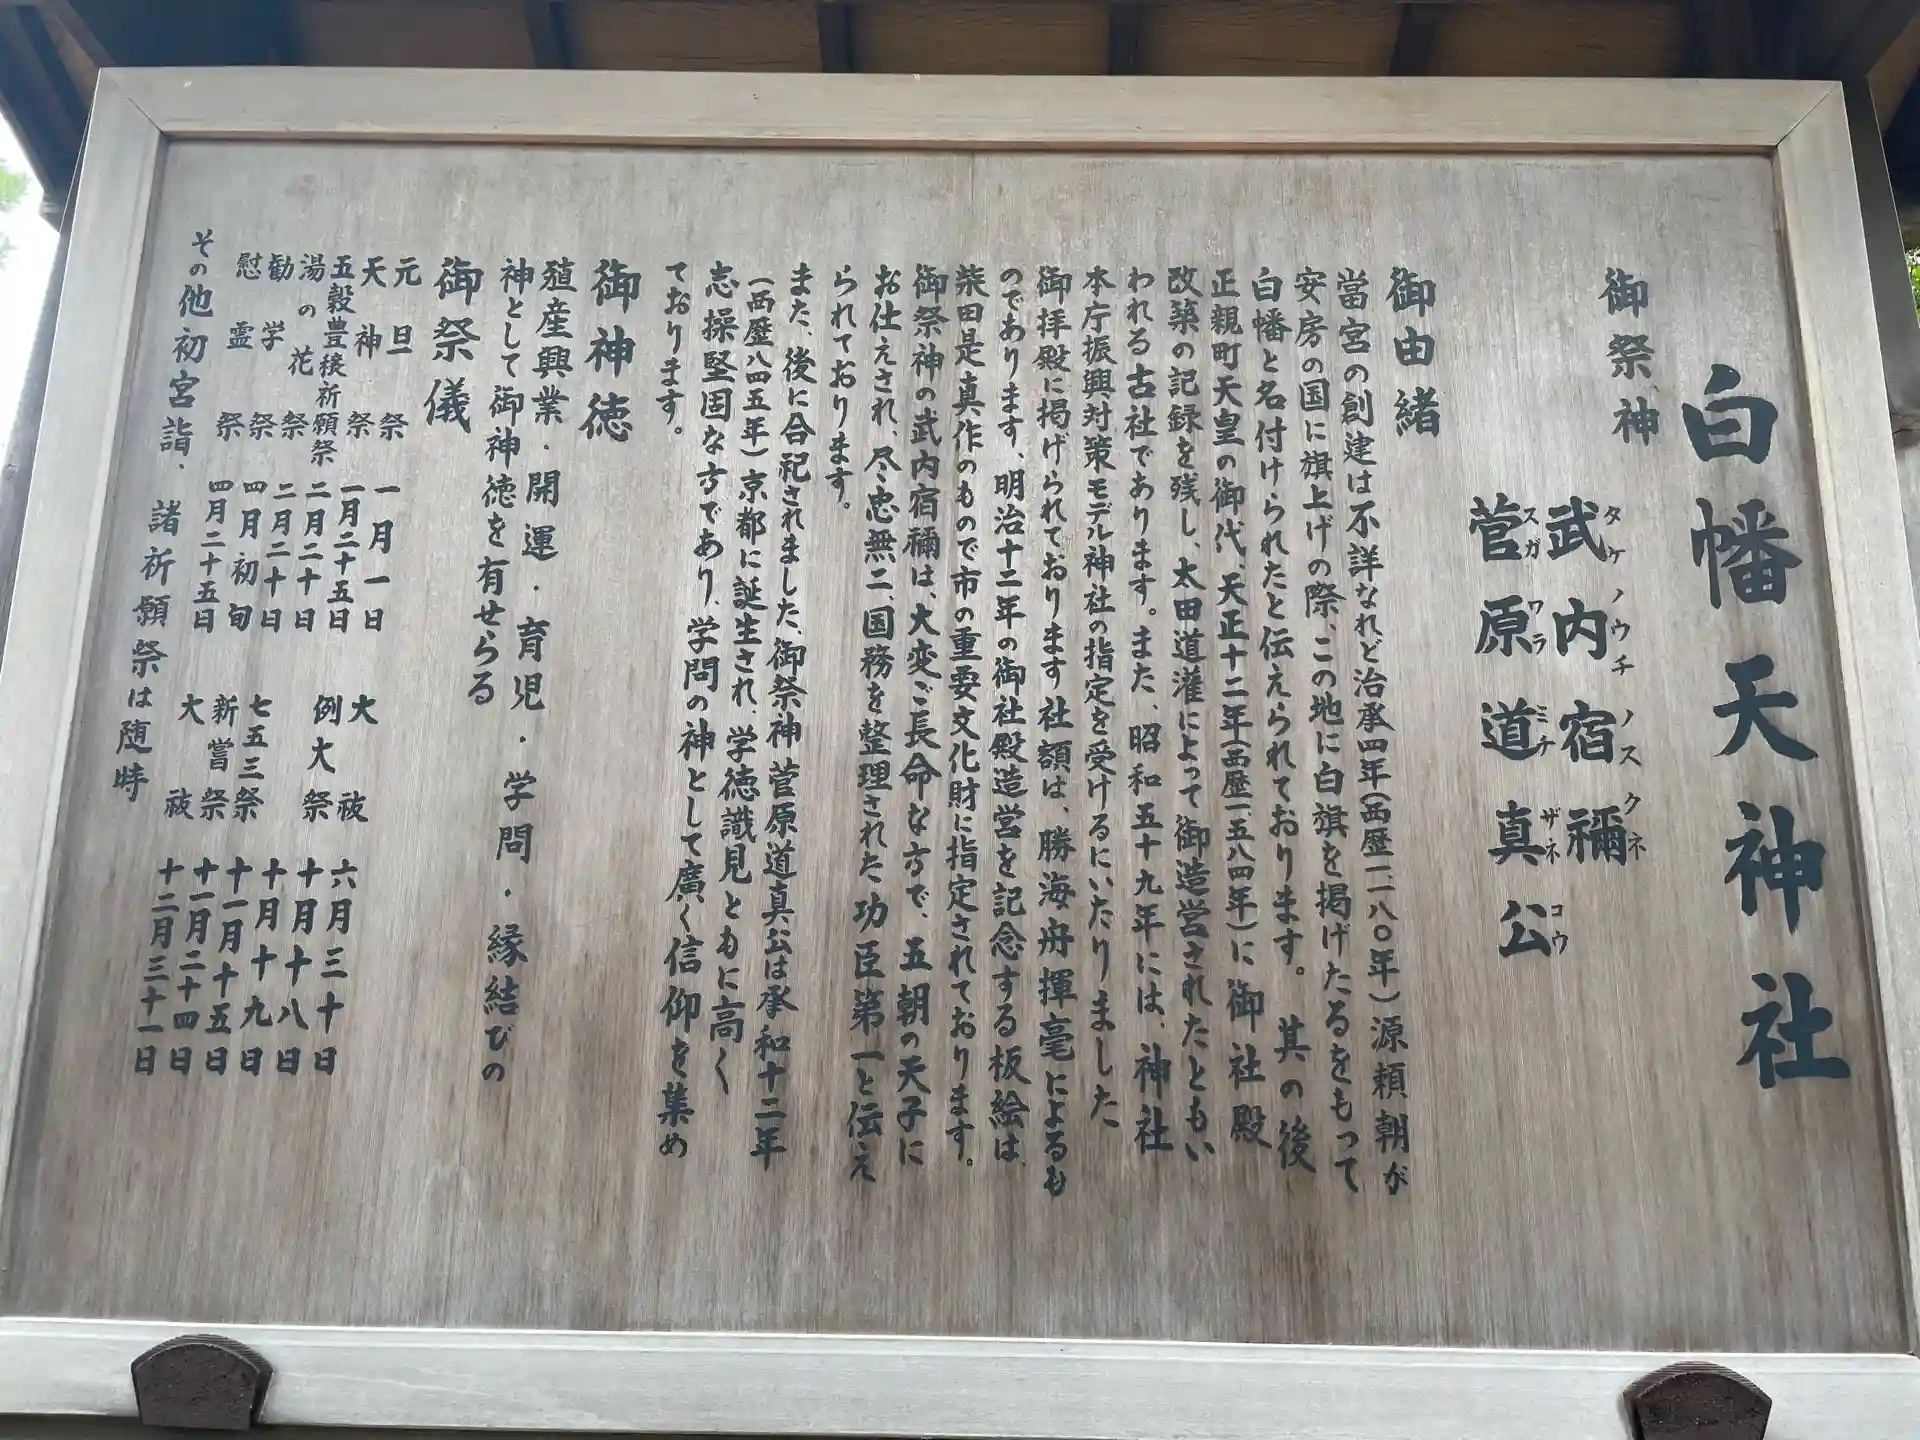 白幡天神社
御祭神
武内宿禰
タケノウチノスクネ
菅原道真公
スガワラミチザネコウ
御由緒
當宮の創建は不詳なれど治承四年(西歴一、一八〇年)源頼朝が
安房の国に旗上げの際、この地に白旗を掲げたるをもって
白幡と名付けられたと伝えられております。其の後
正親町天皇の御代、天正十二年(西歴一、五八四年)に御社殿
改築の記録を残し、太田道灌によって御造営されたともい
われる古社であります。また、昭和五十九年には、神社
本庁振興対策モデル神社の指定を受けるにいたりました
御拝殿に掲げられております社額は、勝海舟揮毫によるも
のであります、明治十二年の御社殿造営を記念する板絵は、
柴田是真作のもので市の重要文化財に指定されております。
御祭神の武内宿禰は、大変ご長命な方で、五朝の天子に
お仕えされ、尽忠無二、国務を整理された功臣第一と伝え
られております。
また、後に合祀されました、御祭神菅原道真公は承和十二年
(西歴八四五年)京都に誕生され、学徳識見ともに高く
志操堅固な方であり、学問の神として廣く信仰を集め
ております。
御神徳
殖産興業・開運・育児・学問・縁結びの
神として御神徳を有せらる
御祭儀
元旦祭 一月一日
天神祭 一月二十五日
五穀豊穣祈願祭 二月二十日
湯の花祭 二月二十日
勧学祭 四月初旬
慰霊祭 四月二十五日
大祓 六月三十日
例大祭 十月十八日
十月十九日
七五三祭 十一月十五日
新嘗祭 十一月二十四日
大祓 十二月三十一日
その他初宮詣、諸祈願祭は随時